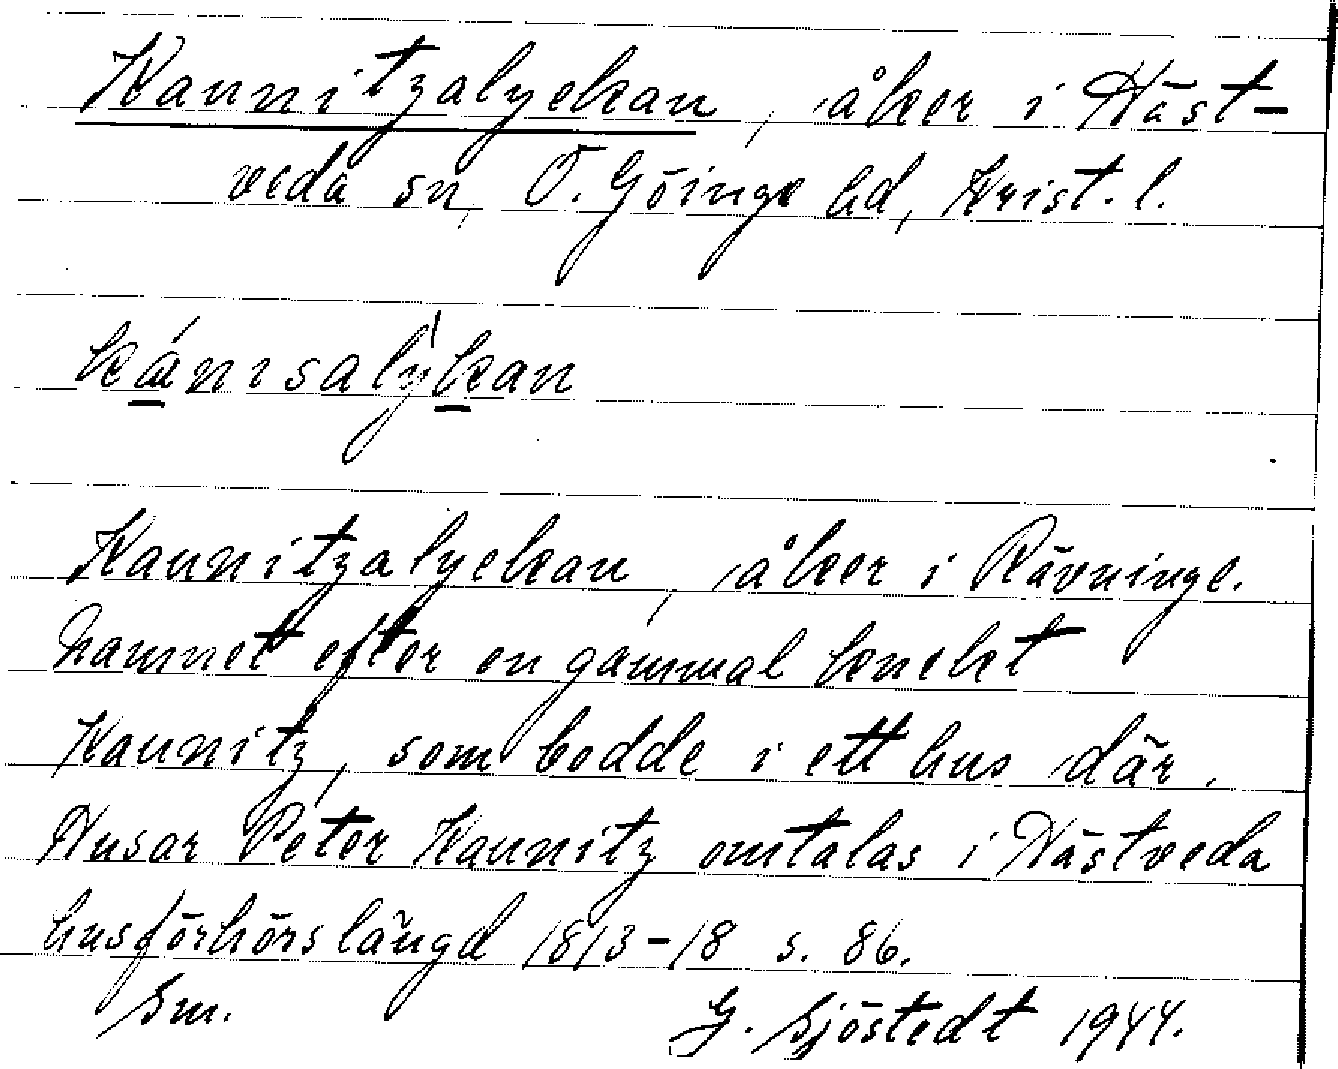 Kaunitzalyckan, åker i Häst-
veda sn, Ö. Göinge hd, Krist. l.
kánisalýkan
Kaunitzalyckan, åker i Rävninge.
Namnet efter en gammal knekt
Kaunitz, som bodde i ett hus där.
Husar Peter Kaunitz omtalas i Hästveda
husförhörslängd 1813-18 s. 86.
Sm. G. Sjöstedt 1944.